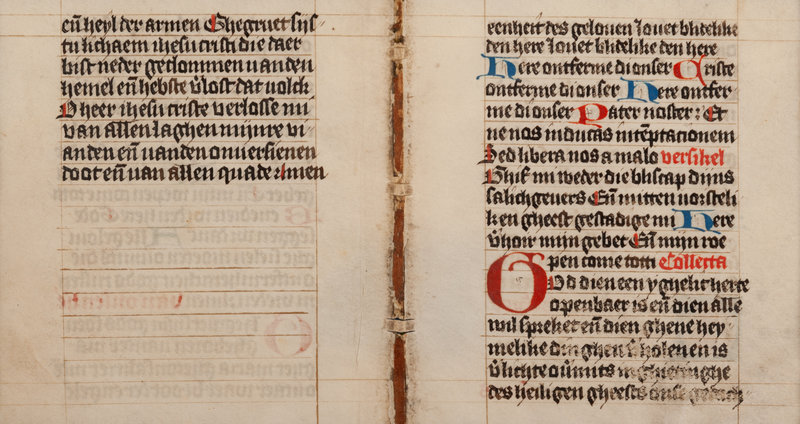 eñ heyl der armen Ghegruet sijs
tu lichaem ihesu cristi die daer
bist neder geclommen vanden
hemel eñ hebste v̄lost dat volck
O heer ihesu criste verlosse mi
van allen laghen mijnre vi
anden eñ vanden onversienen
doot eñ van allen quade Amen
eenheit des geloven Lovet blidelike
den here Lovet blidelike den here
Here ontferme di onser Criste
ontferme di onser Here ontfer
me di onser Pater noster : Et
ne nos inducas in tēptacionem
Sed libera nos a malo versikel
Ghif mi weder die bliscap dijns
salichgevers Eñ mitten vorsteli
ken gheest gestadige mi Here
v̄hoir mijn gebet Eñ mijn roe
pen come totti Collecta
God dien een yghelic herte
openbaer is eñ dien alle
wil spreket eñ dien ghene hey
melike dinghen v̄holen en is
v̄lichte ov̄mits inghietinghe
des heiligen gheests onse gedach